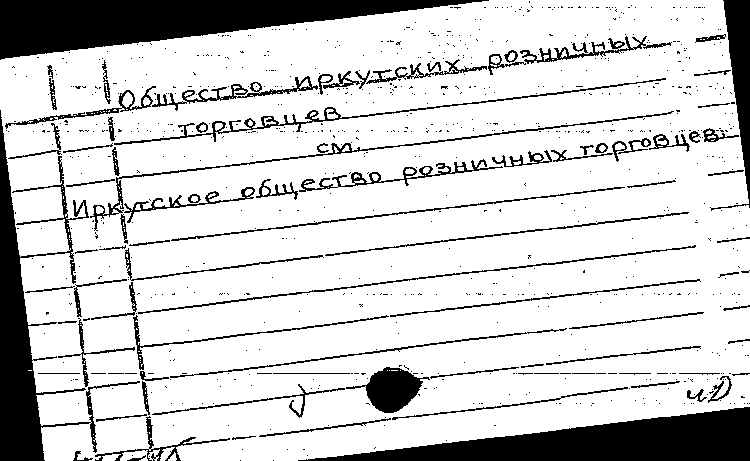 Общество иркутских розничных
торговцев
см.
Иркутское общество розничных торговцев.